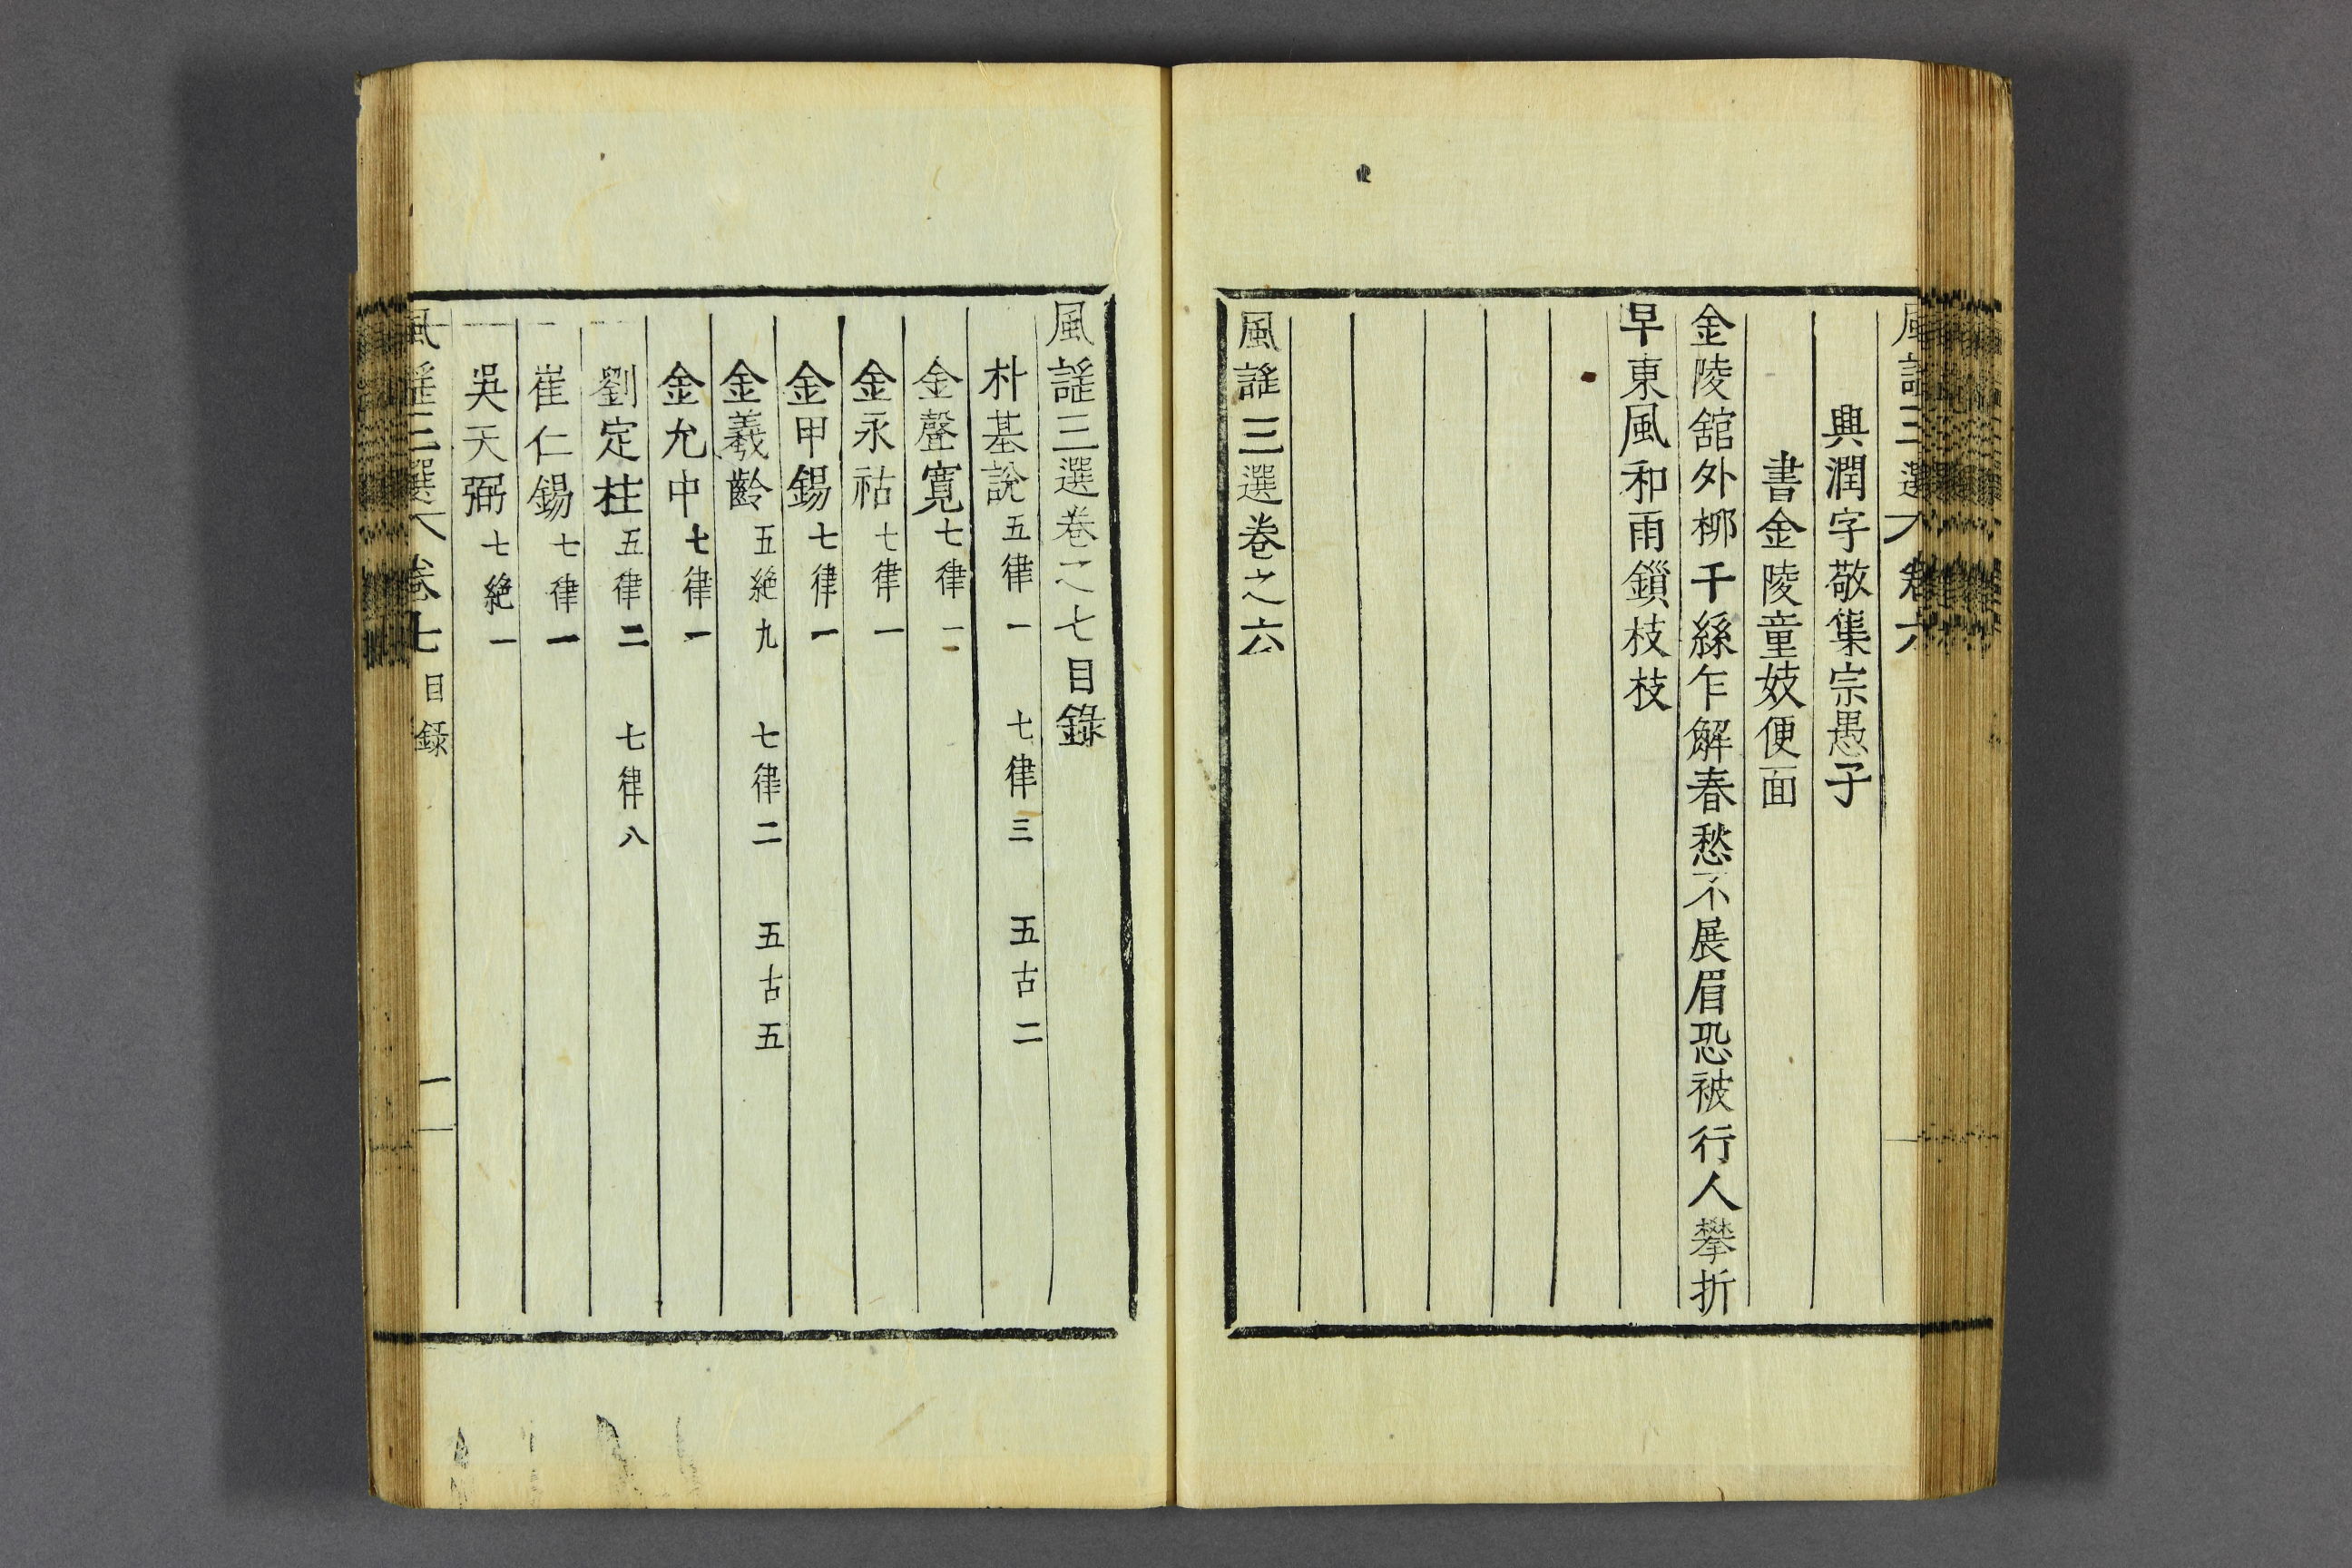 風謠三選 卷六
興潤字敬集宗愚子
書金陵童妓便面
金陵舘外柳千絲乍解春愁不展眉恐被行人攀折
早東風和雨鎖枝枝
風謠三選卷之六
風謠三選卷之七目錄
朴基說 五律一 七律三 五古二
金聲寬 七律一
金永祜 七律一
金甲錫 七律一
金羲齡 五絶九 七律二 五古五
金允中 七律一
劉定柱 五律二 七律八
崔仁錫 七律一
吳天弼 七絶一
風謠三選 卷七 目録 一